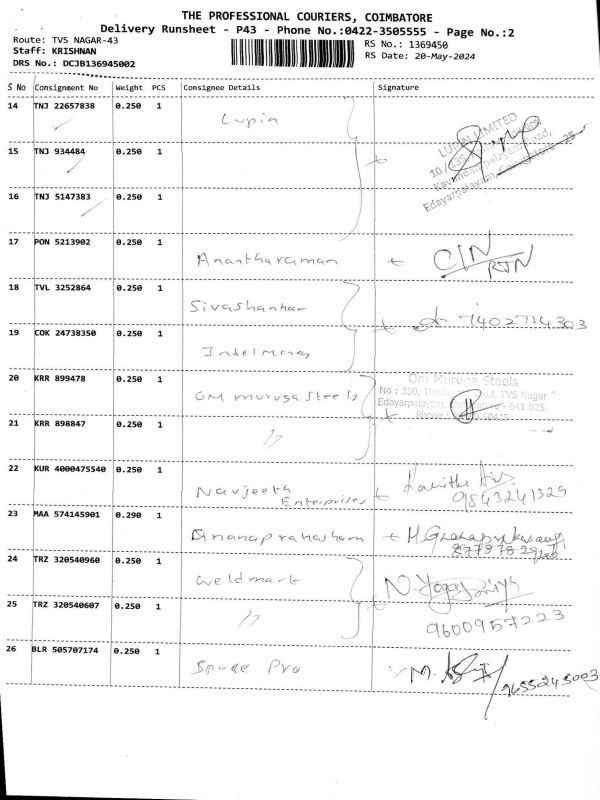 THE PROFESSIONAL COURIERS, COIMBATORE
Delivery Runsheet - P43 - Phone No.:0422-3505555 - Page No.:2
Route: TVS NAGAR-43
Staff: KRISHNAN
DRS No.: DCJB136945002
RS No.: 1369450
RS Date: 20-May-2024
S No Consignment No Weight PCS Consignee Details Signature
14 TNJ 22657838 0.250 1 Lupin
LUPIN LIMITED
15 TNJ 934484 0.250 1
Edayarpalayam, Coimbatore - 25
16 TNJ 5147383 0.250 1
17 PON 5213902 0.250 1
Anantharaman CIN
RTN
18 TVL 3252864 0.250 1
Sivashankar
7402714303
19 COK 24738350 0.250 1
Indel Money
20 KRR 899478 0.250 1
OM muruga Steels
Om Muruga Steels
No : 350, Road, TVS Nagar
Edayarpalayam, - 641 025.
Phone :
21 KRR 898847 0.250 1
"
22 KUR 4000475540 0.250 1
Navjeeth
Enterprises
9843241329
23 MAA 574145901 0.290 1
Gnanaprakasham
24 TRZ 320540960 0.250 1
weldmark
25 TRZ 320540607 0.250 1
"
9600957223
26 BLR 505707174 0.250 1
Space Pro
9655245003